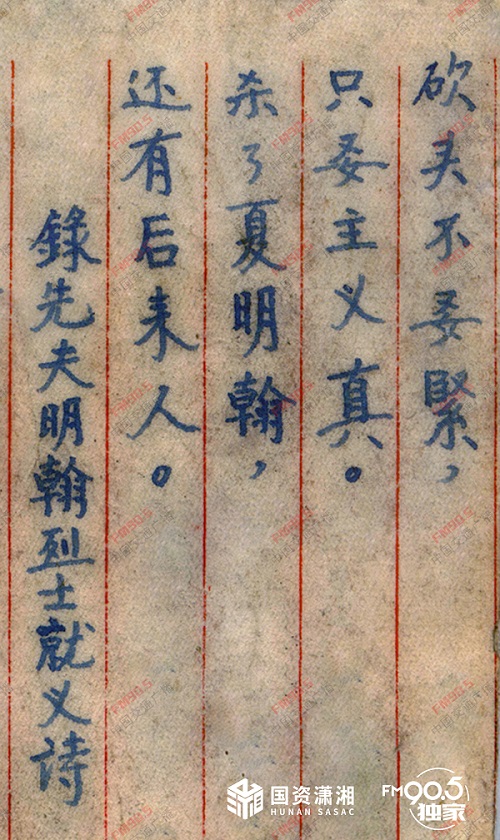 砍头不要緊，
只要主义真。
杀了夏明翰，
还有后来人。
錄先夫明翰烈士就义诗
国资潇湘
HUNAN SASAC
FM90.5
独家